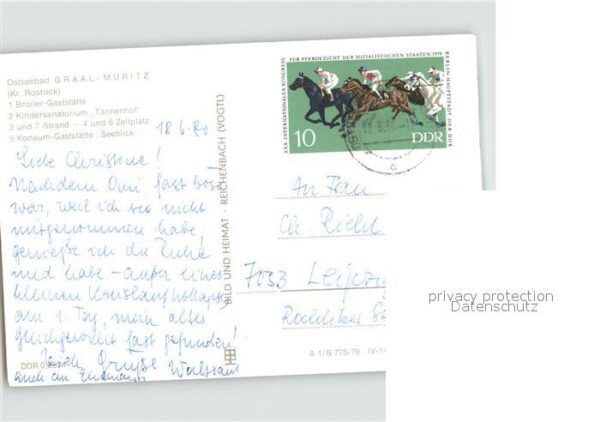 Ostseebad GRAAL-MÜRITZ
(Kr. Rostock)
1 Broiler-Gaststätte
2 Kindersanatorium „Tannenhof"
3 und 7 Strand – 4 und 6 Zeltplatz
5 Konsum-Gaststätte „Seeblick"
18.6.80
Liebe Christine!
Nachdem Omi fast böse
war, weil ich sie nicht
mitgenommen habe,
genieße ich die Ruhe
und habe – außer eines
kleinen Kreislaufkollaps
am 1. Tag, mein altes
Gleichgewicht fast gefunden!
Grüße
auch an
DDR
BILD UND HEIMAT · REICHENBACH (VOGTL)
XXX. INTERNATIONALER KONGRESS
FÜR PFERDEZUCHT DER SOZIALISTISCHEN STAATEN 1979
BERLIN-HAUPTSTADT DER DDR
10
DDR
An Frau
Ch. Riehl
7053 Leipzig
A 1/B 775/79 IV-14
privacy protection
Datenschutz